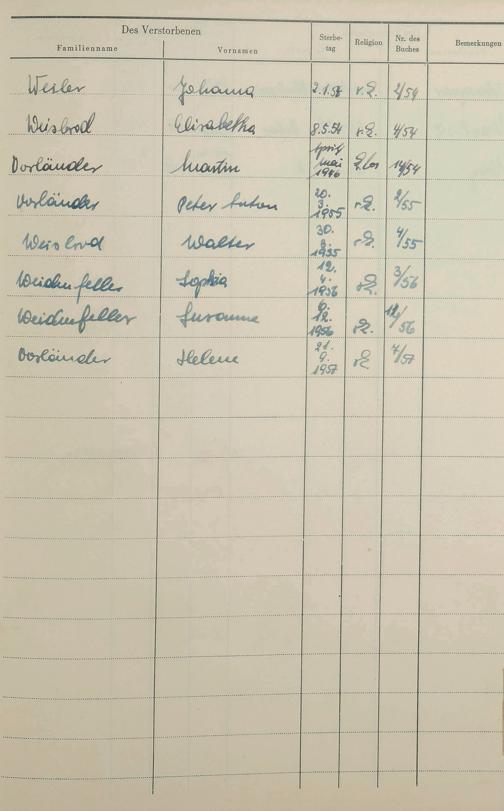 Des Verstorbenen
Familienname Vornamen Sterbe-tag Religion Nr. des Buches Bemerkungen
Weiler Johanna 2.1. r.L. 2/54
Weisbrod Elisabetha 8.5.54 r.L. 4/54
Vorländer Martin April Mai 1946 14/54
Vorländer Peter Anton 20. 3. 1955 r.L. 2/55
Weisbrod Walter 30. 8. 1955 r.L. 4/55
Weidenfeller Sophia 12. 4. 1956 r.L. 3/56
Weidenfeller Susanne 6. 12. 1956 r.L. 12/56
Vorländer Helene 21. 9. 1957 r.L. 7/57